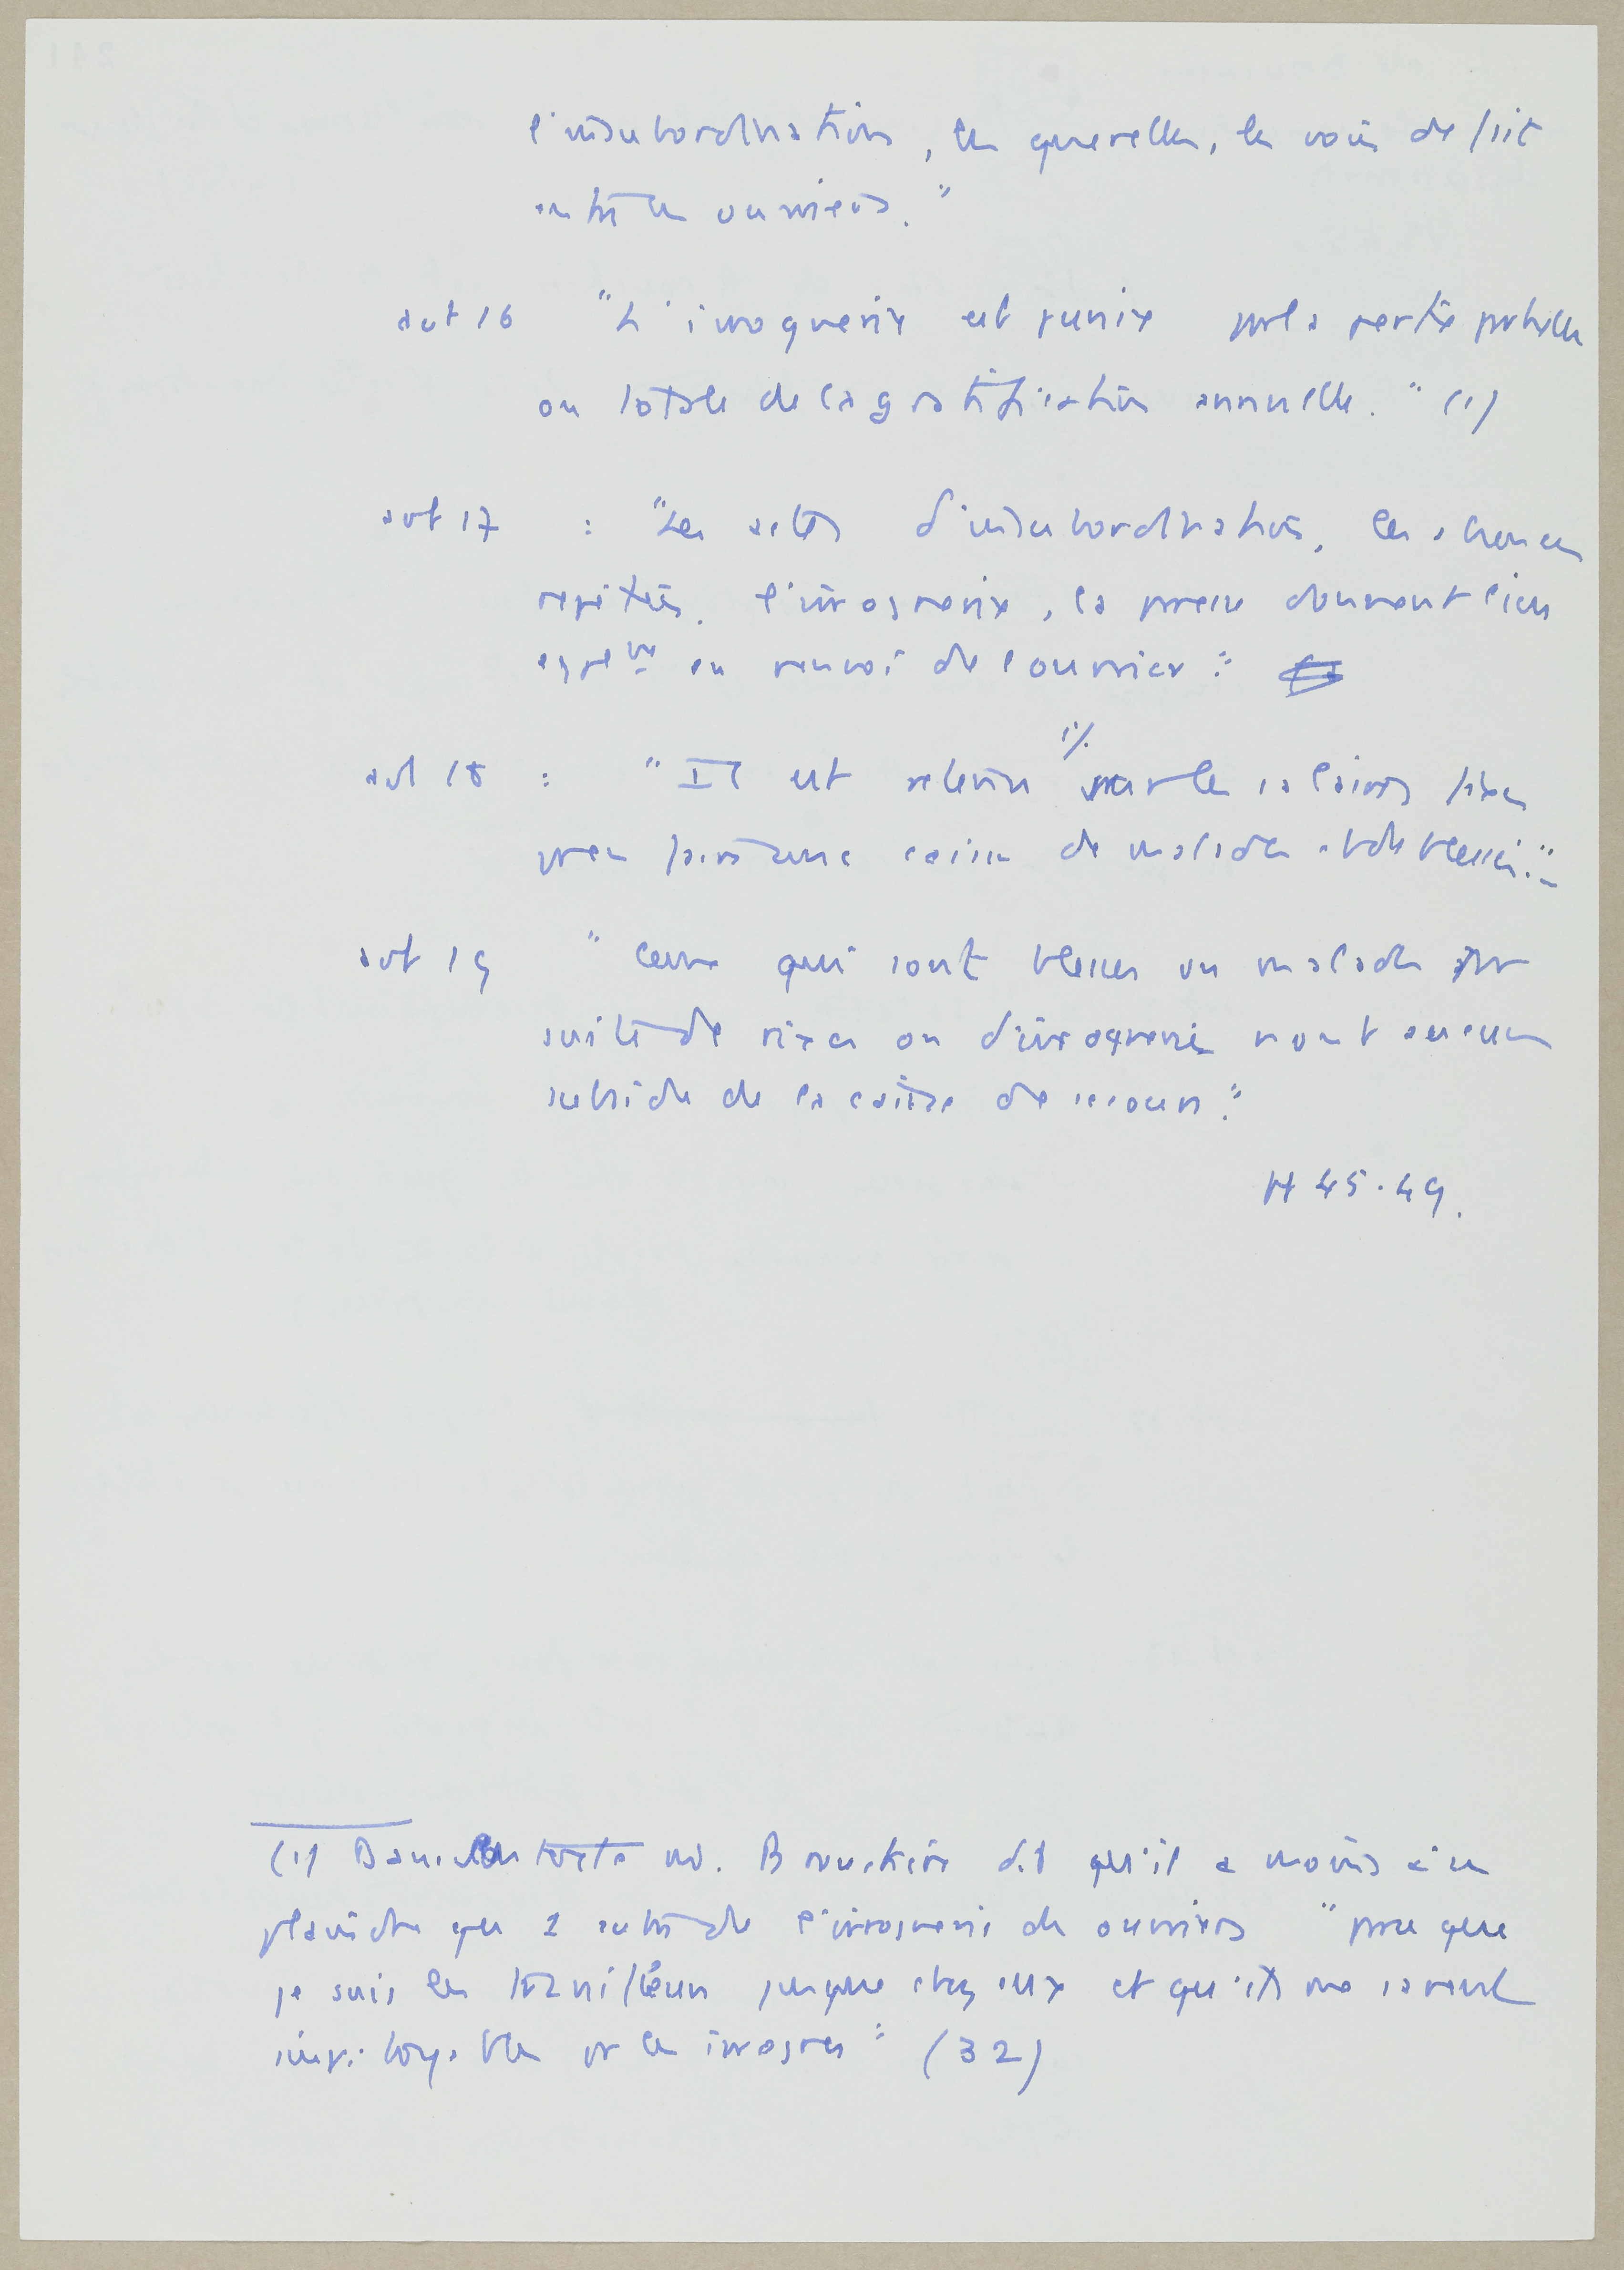 l'insubordination, les querelles, les voies de fait
entre les ouvriers."
art 16 "L'ivrognerie est punie par la perte partielle
ou totale de la gratification annuelle." (1)
art 17 : "Les actes d'insubordination, les absences
répétées, l'ivrognerie, la paresse donneront lieu
au renvoi de l'ouvrier."
art 18 : "Il est retenu 1% sur les salaires fixes
pour faire une caisse de malades et de blessés."
art 19 "Ceux qui sont blessés ou malades par
suite de rixes ou d'ivrognerie n'ont aucun
subside de la caisse de secours."
H 45-49.
(1) Dans texte dit qu'il a moins à se
plaindre que autre de l'ivrognerie des ouvriers "parce que
je suis les jusque chez eux et qu'ils me savent
impitoyable pr les ivrognes" (32)